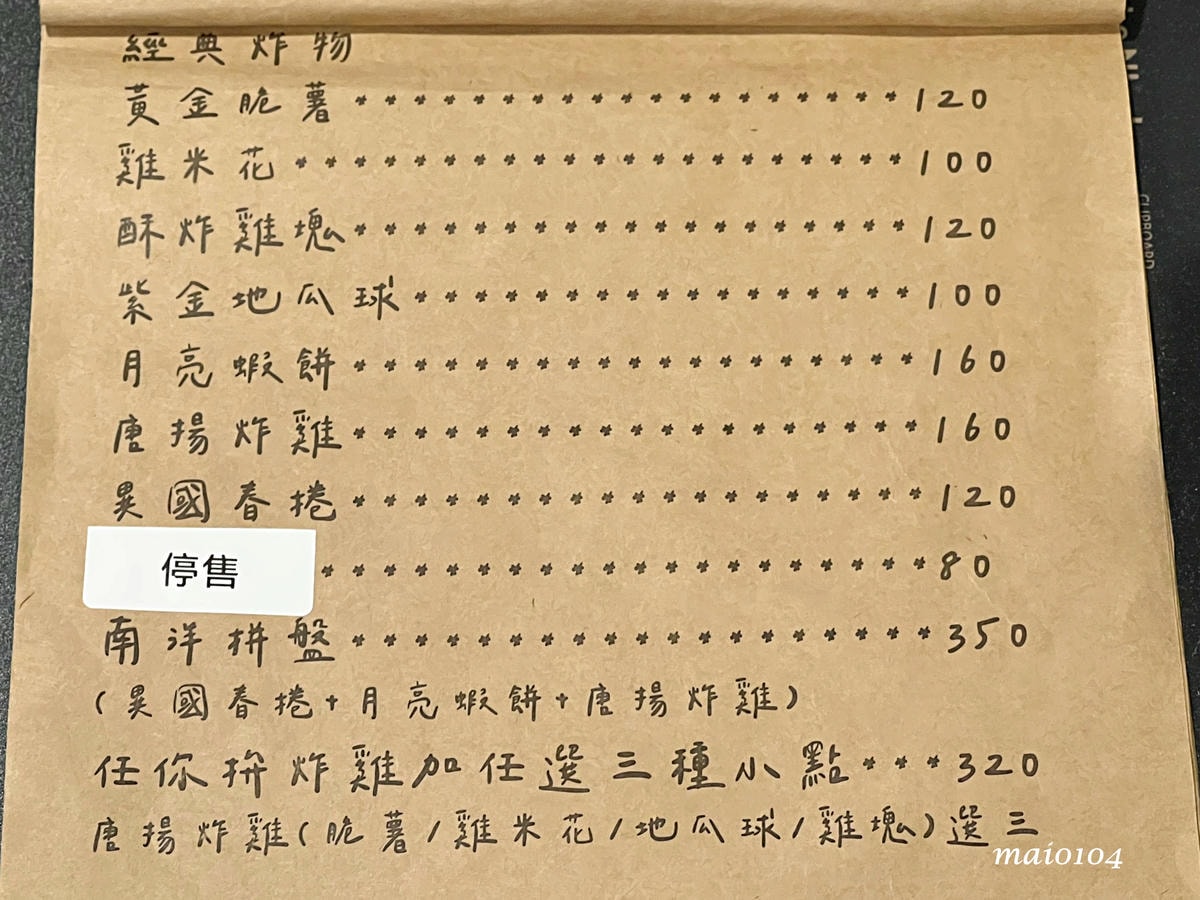 經典炸物
黃金脆薯******************120
雞米花*********************100
酥炸雞塊*******************120
紫金地瓜球*****************100
月亮蝦餅*******************160
唐揚炸雞*******************160
異國春捲*******************120
停售********************80
南洋拼盤*******************350
(異國春捲+月亮蝦餅+唐揚炸雞)
任你拚炸雞加任選三種小點***320
唐揚炸雞(脆薯/雞米花/地瓜球/雞塊)選三
maio104